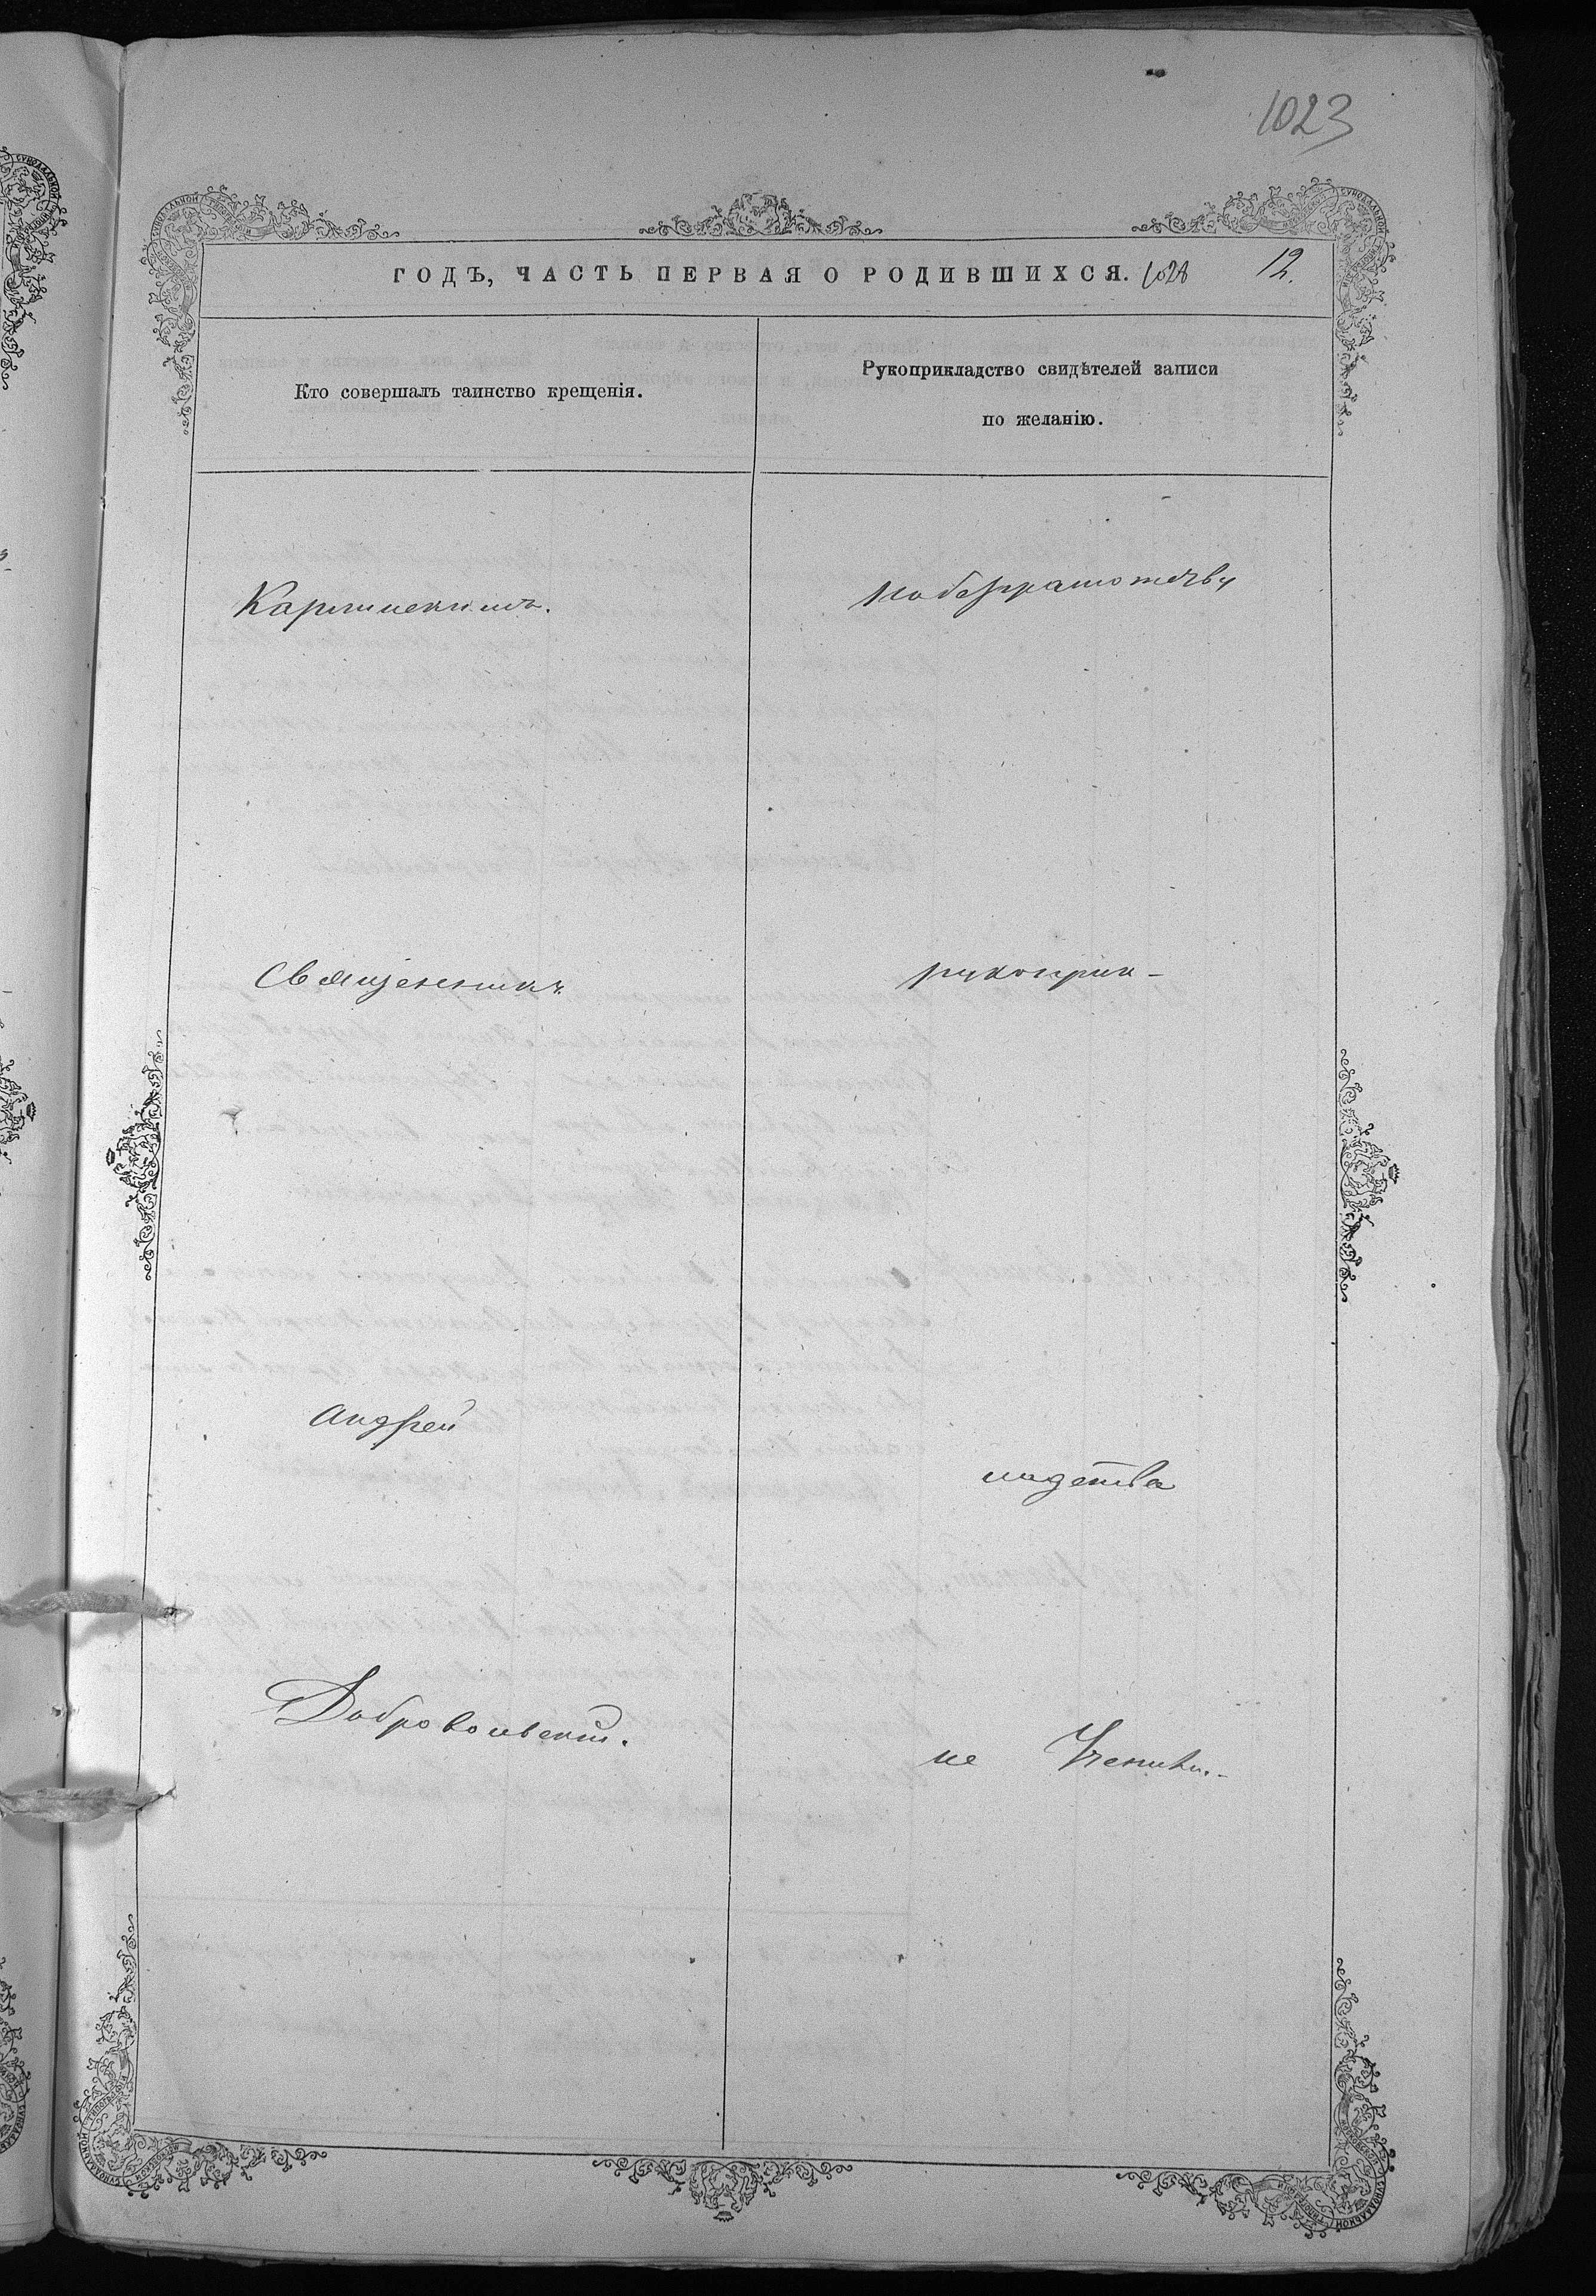 1023
ГОДЪ, ЧАСТЬ ПЕРВАЯ О РОДИВШИХСЯ. 1028 12.
Кто совершалъ таинство крещенія.
Рукоприкладство свидѣтелей записи
по желанію.
по безграмотству
Священникъ
рукоприк-
Андрей
ладства
Добровольскій.
не Ученили.-